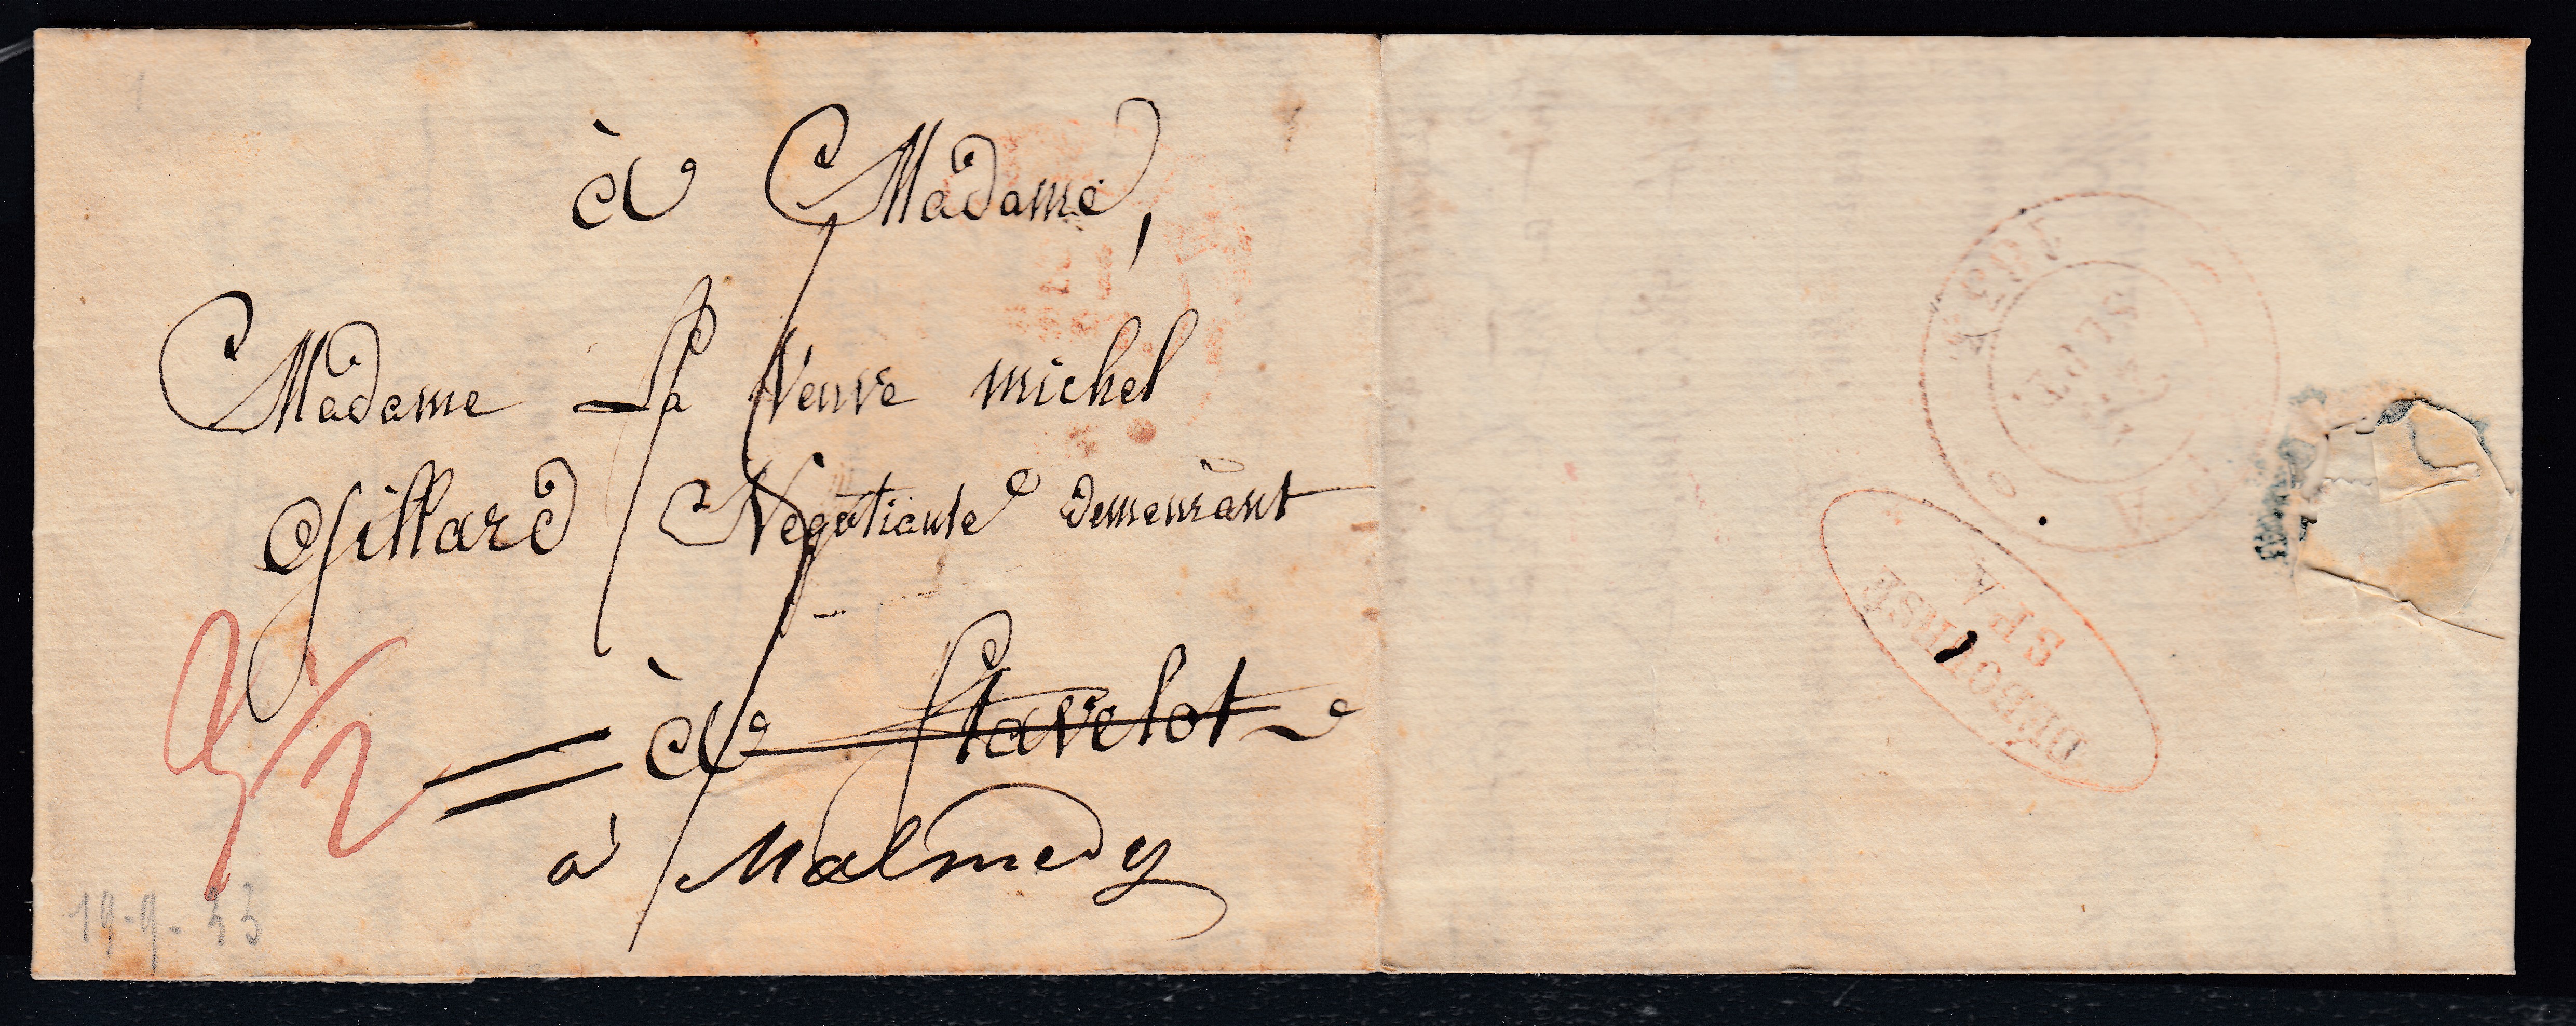 à Madame,
Madame La Veuve michel
Gillard Negotiante demeurant
à Stavelot
à Malmedy
19-9-33
DEBOURSÉ
SPA